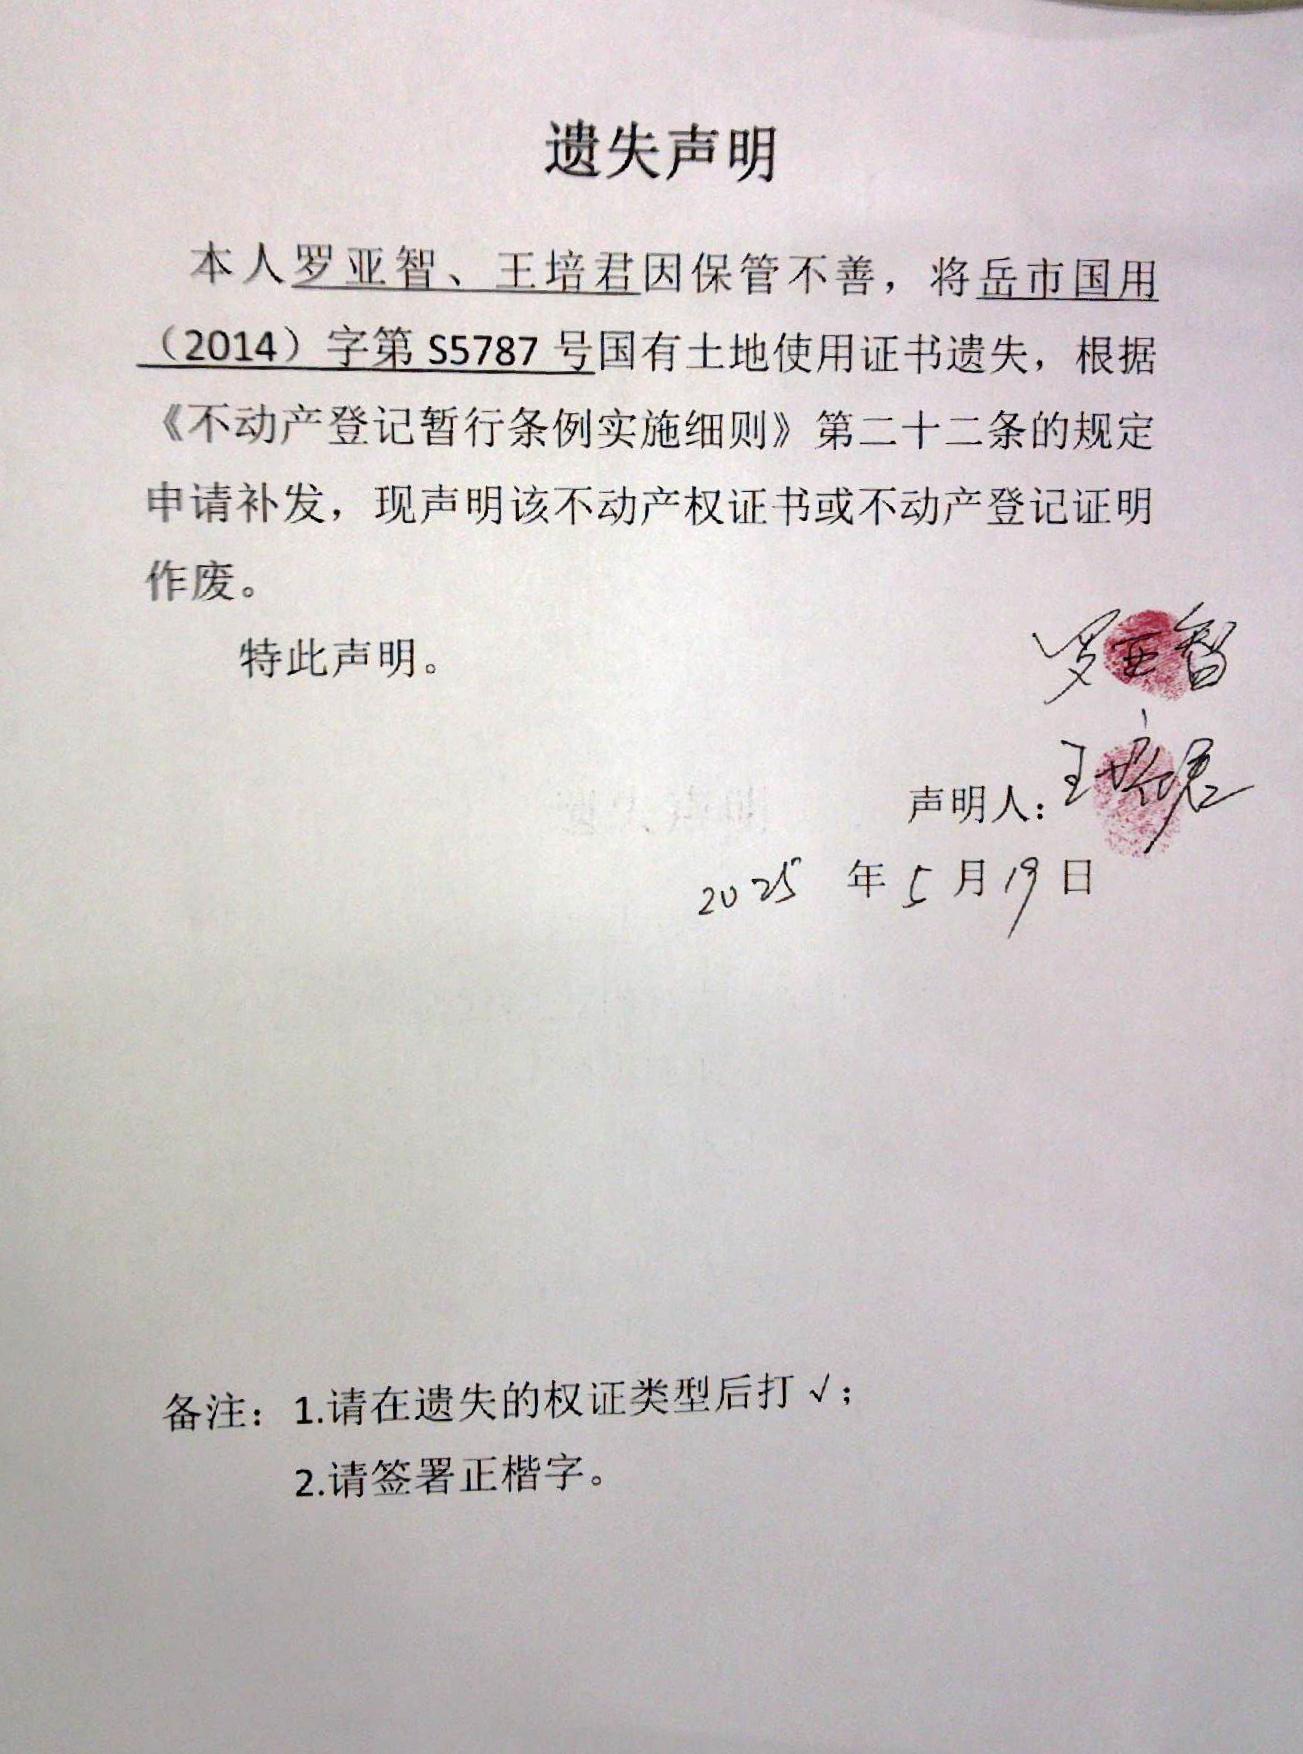 遗失声明
本人罗亚智、王培君因保管不善，将岳市国用
（2014）字第 S5787 号国有土地使用证书遗失，根据
《不动产登记暂行条例实施细则》第二十二条的规定
申请补发，现声明该不动产权证书或不动产登记证明
作废。
特此声明。
罗亚智
声明人：王培君
2025 年 5 月 19 日
备注：1.请在遗失的权证类型后打 √；
2.请签署正楷字。